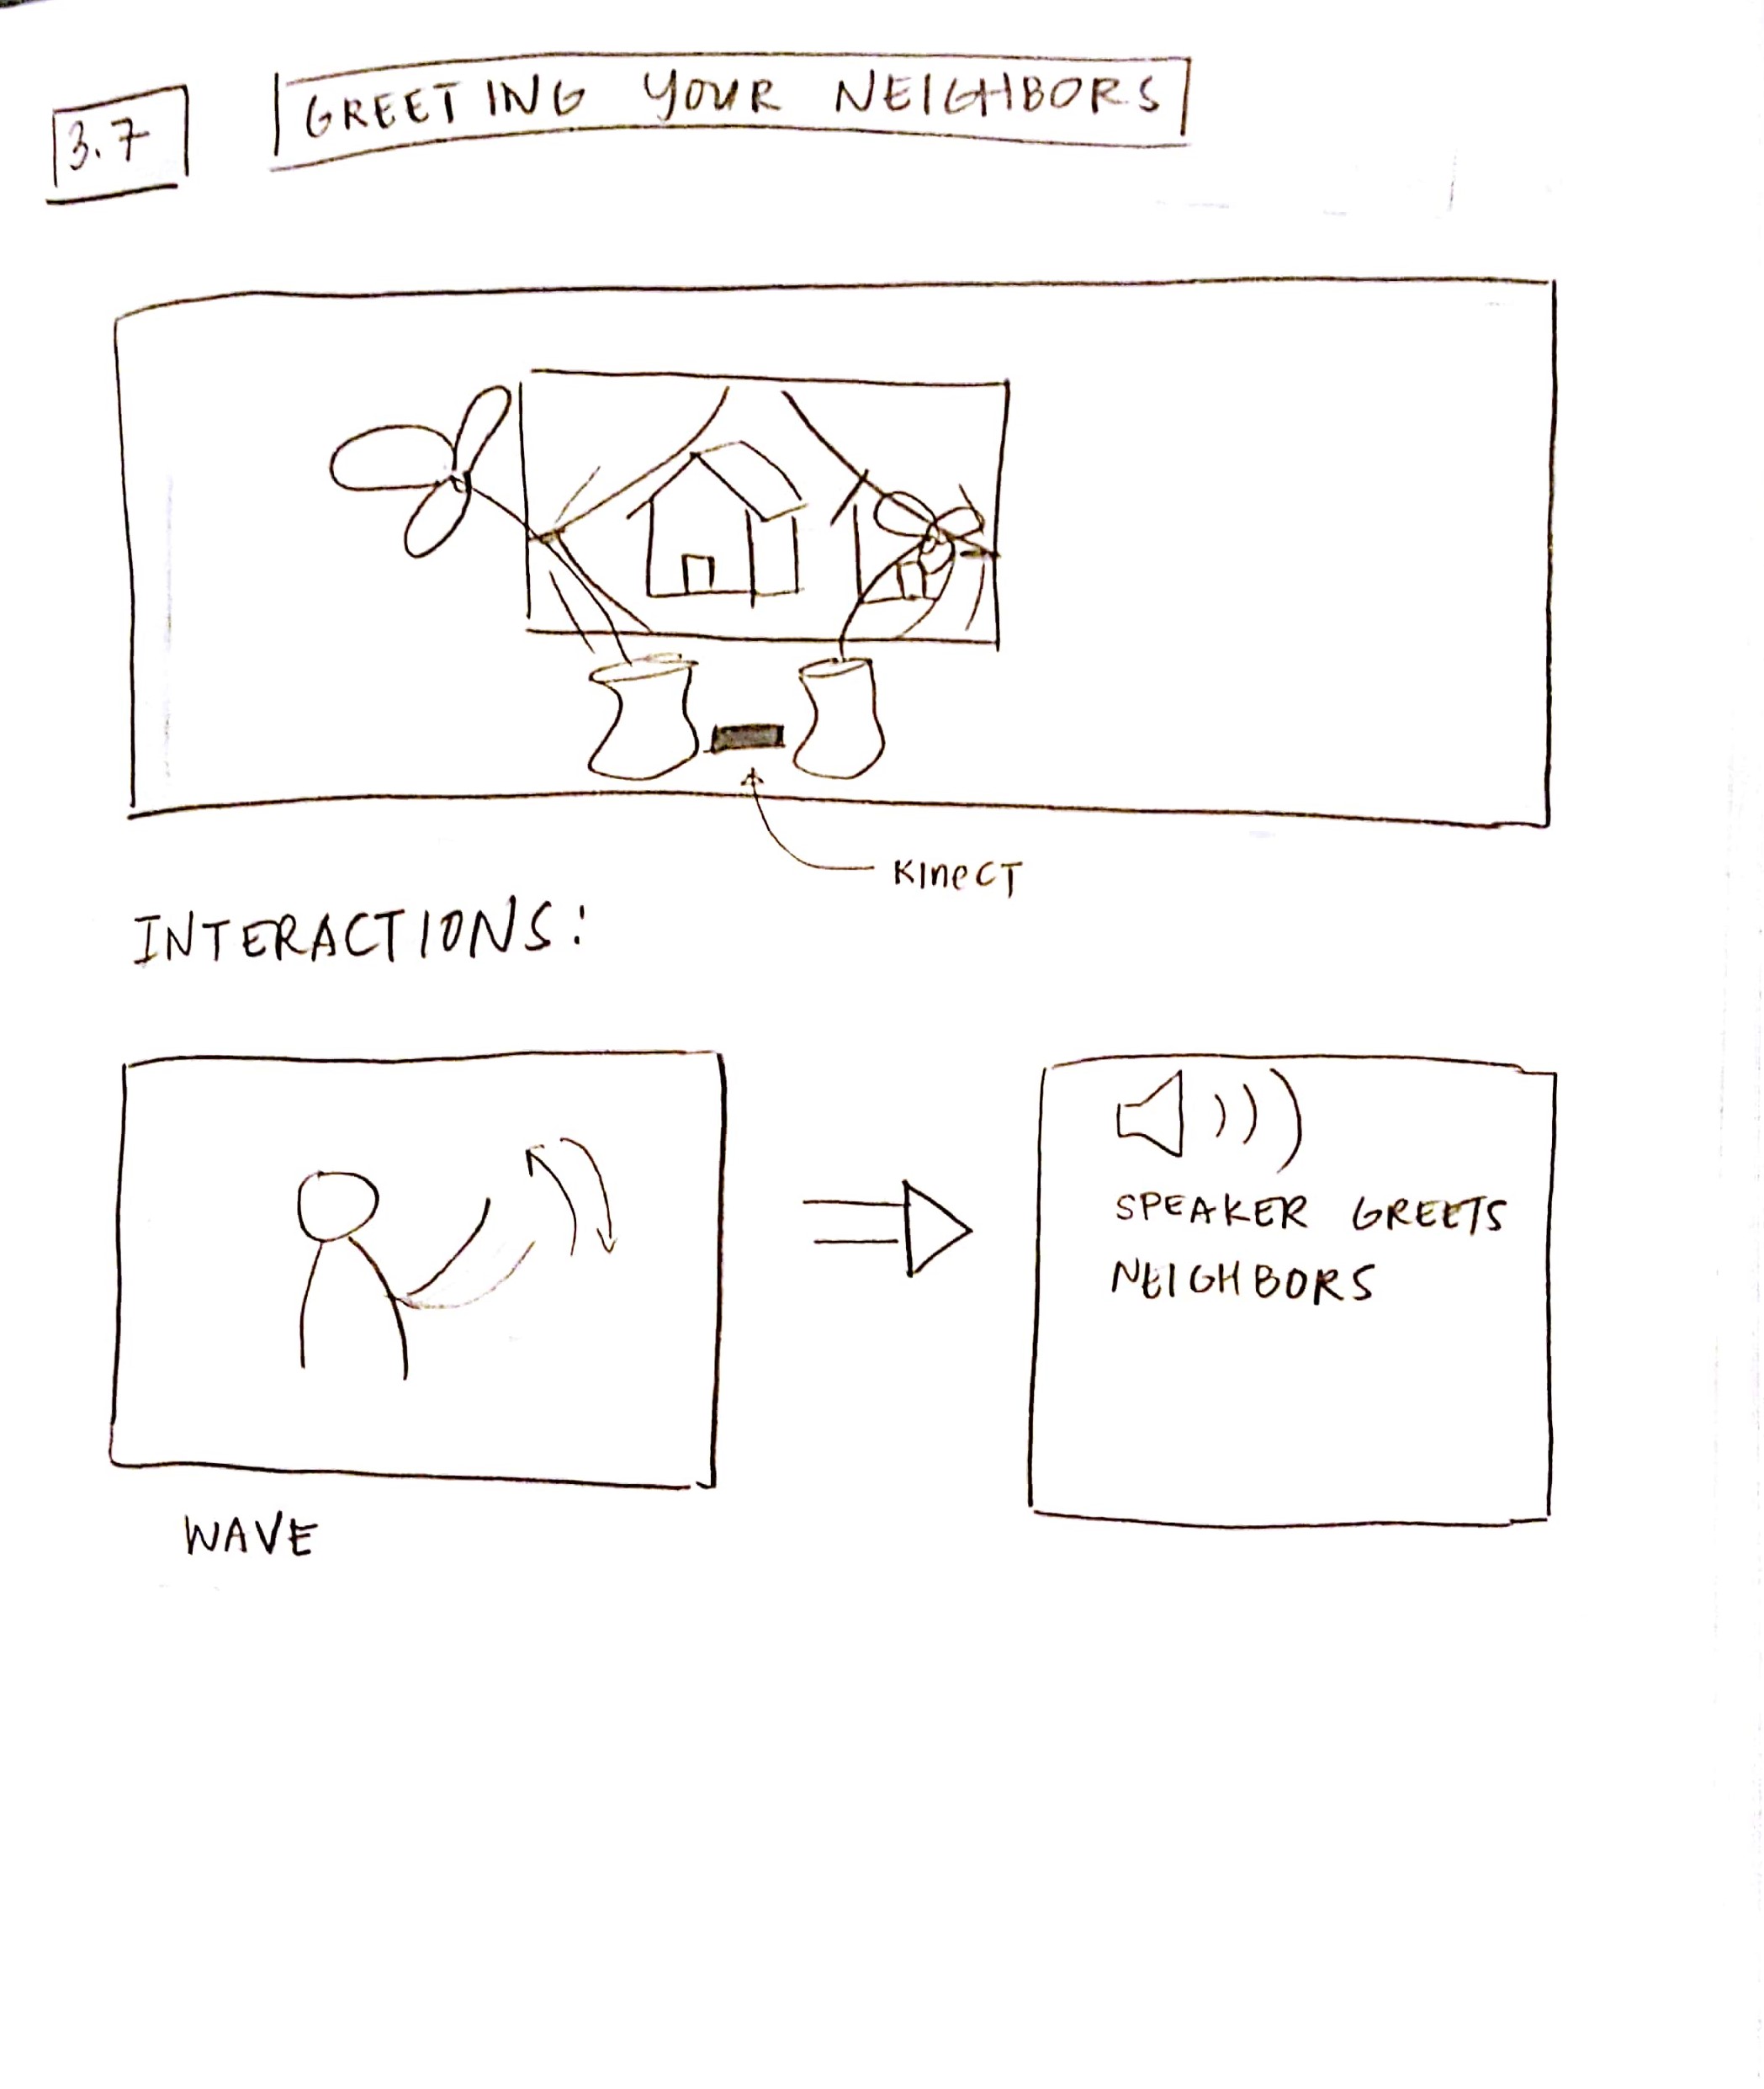 3.7
GREETING YOUR NEIGHBORS
KINECT
INTERACTIONS:
SPEAKER GREETS
NEIGHBORS
WAVE